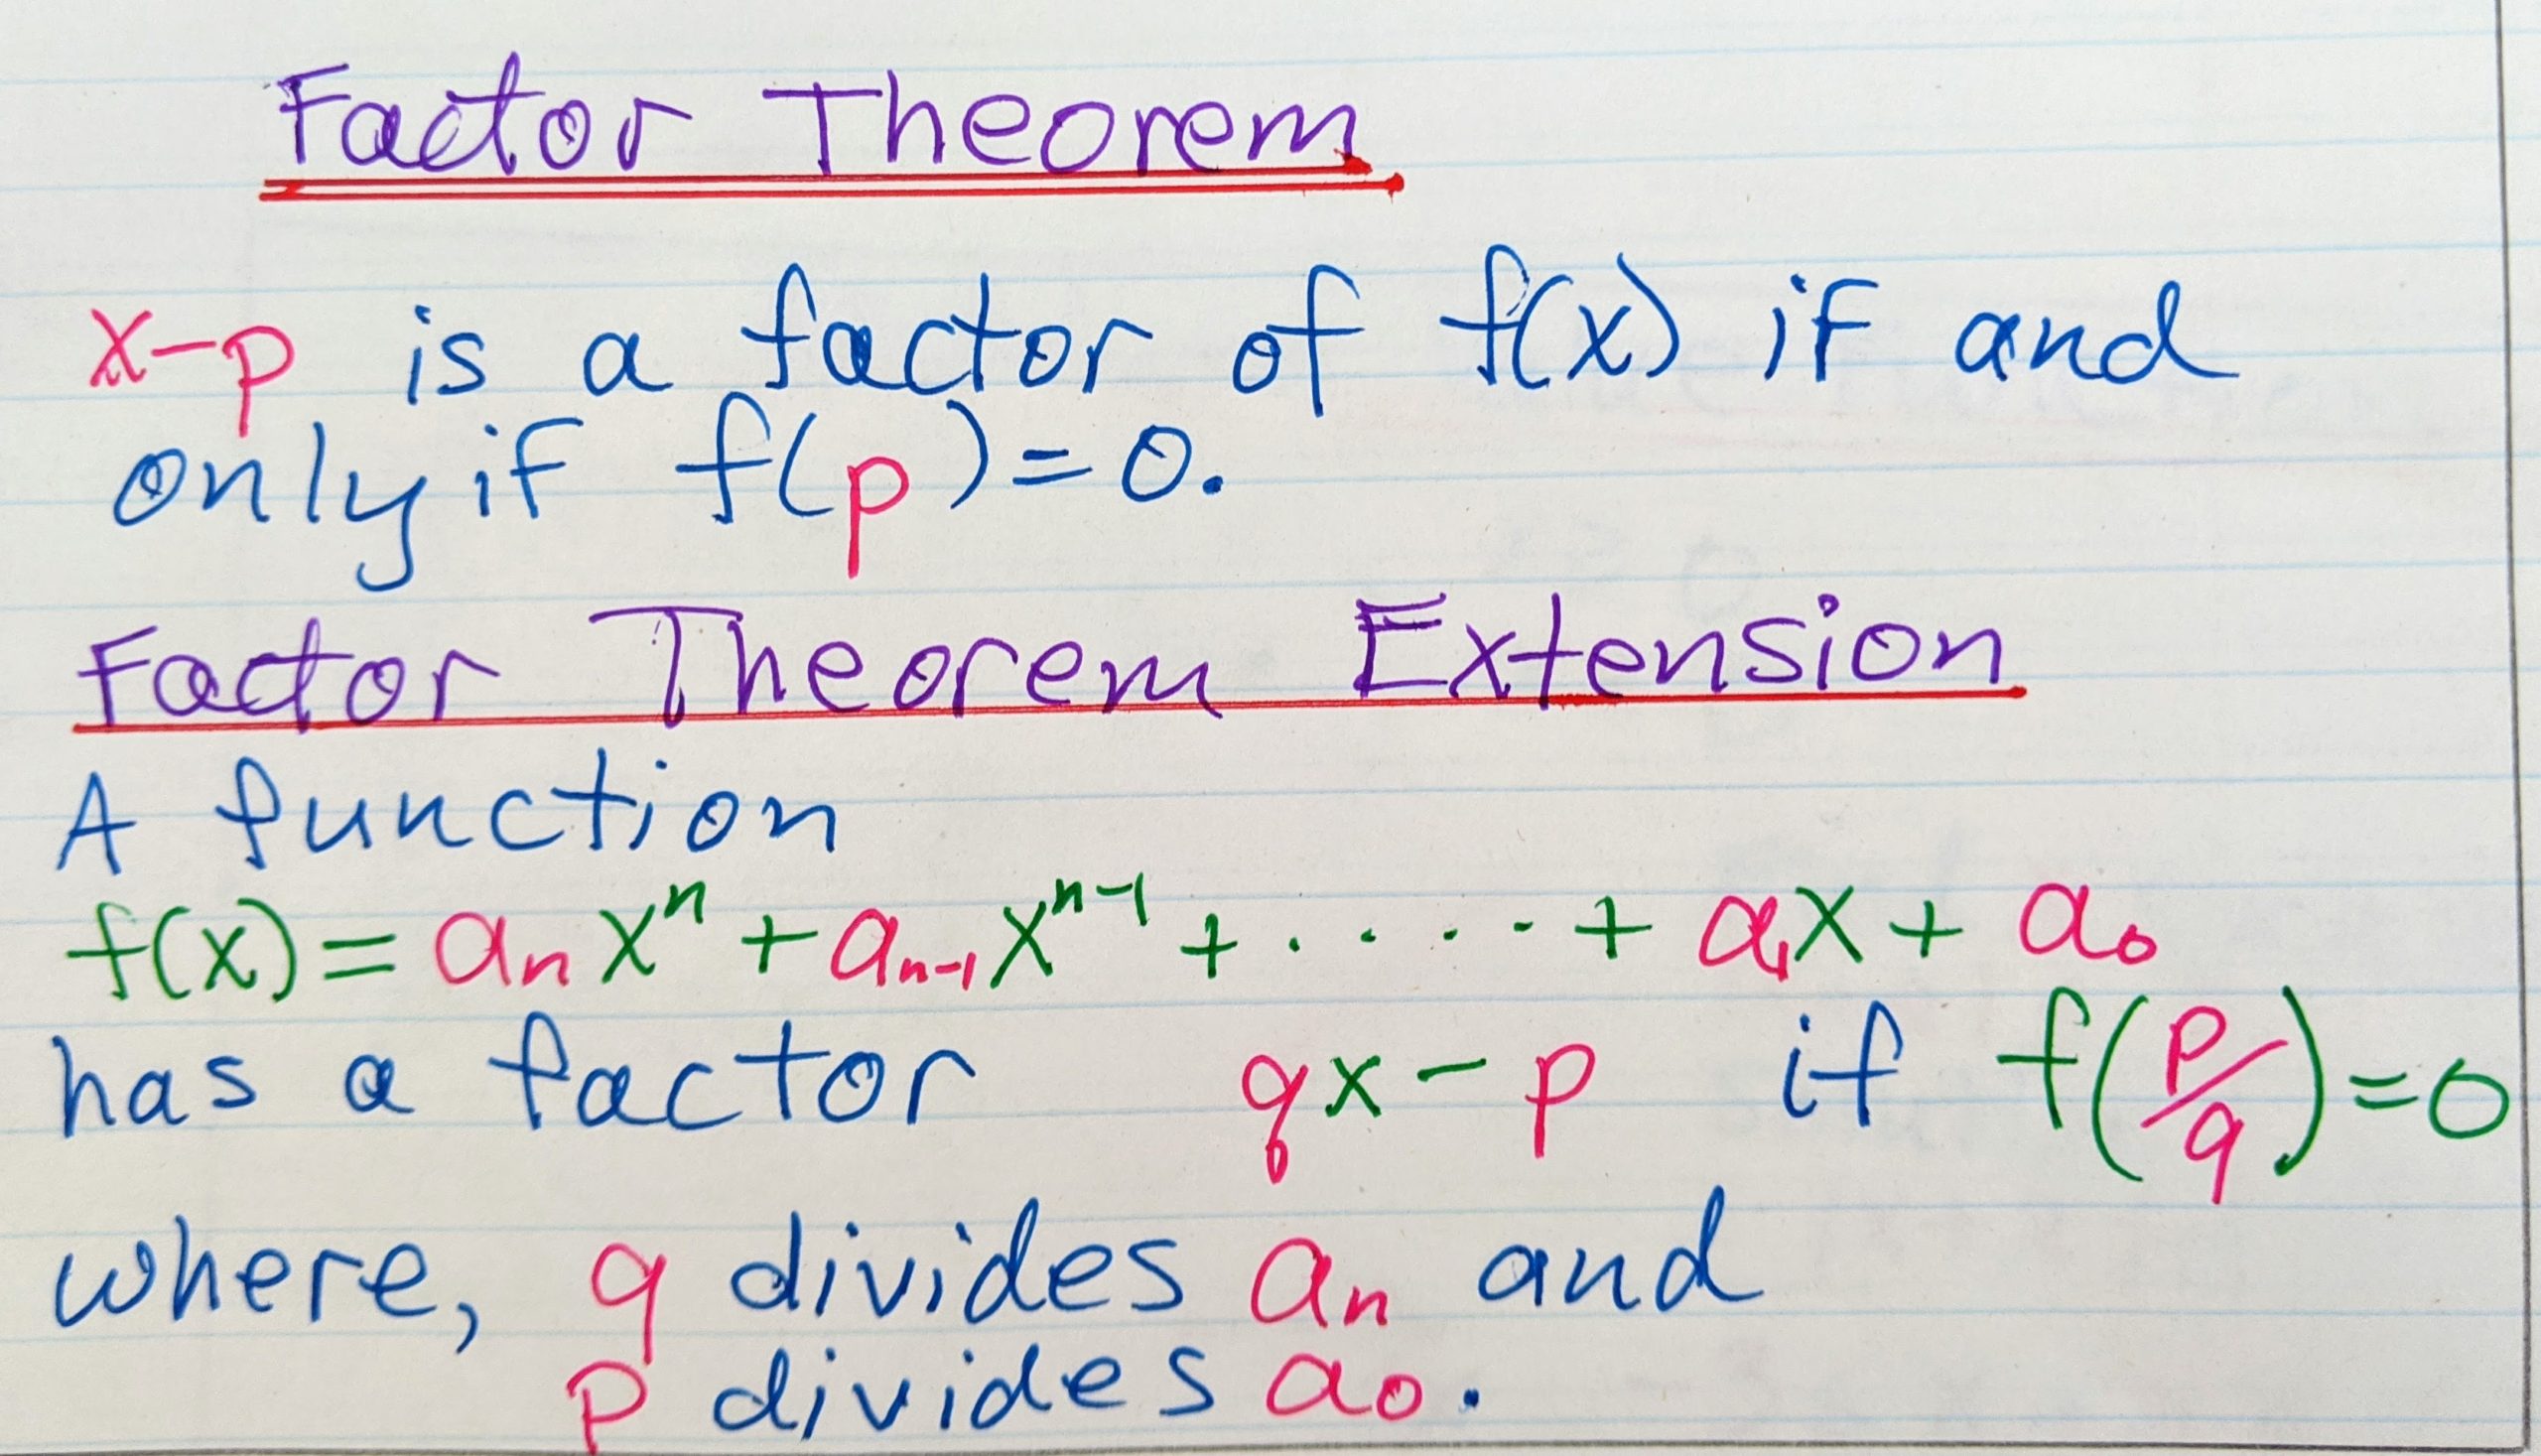 Factor Theorem
x-p is a factor of f(x) if and
only if f(p)=0.
Factor Theorem Extension
A function
f(x)= aₙxⁿ + aₙ₋₁xⁿ⁻¹ + ····· + a₁x + a₀
has a factor qx - p if f(p/q)=0
where, q divides aₙ and
p divides a₀.